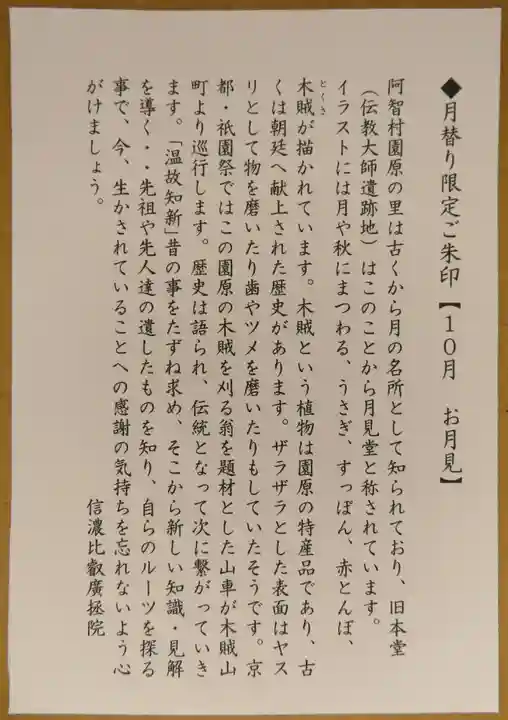 ◆月替り限定ご朱印【10月　お月見】
阿智村園原の里は古くから月の名所として知られており、旧本堂
（伝教大師遺跡地）はこのことから月見堂と称されています。
イラストには月や秋にまつわる、うさぎ、すっぽん、赤とんぼ、
木賊が描かれています。木賊という植物は園原の特産品であり、古
とくさ
くは朝廷へ献上された歴史があります。ザラザラとした表面はヤス
リとして物を磨いたり歯やツメを磨いたりもしていたそうです。京
都・祇園祭ではこの園原の木賊を刈る翁を題材とした山車が木賊山
町より巡行します。歴史は語られ、伝統となって次に繋がっていき
ます。「温故知新」昔の事をたずね求め、そこから新しい知識・見解
を導く・・先祖や先人達の遺したものを知り、自らのルーツを探る
事で、今、生かされていることへの感謝の気持ちを忘れないよう心
がけましょう。
信濃比叡廣拯院